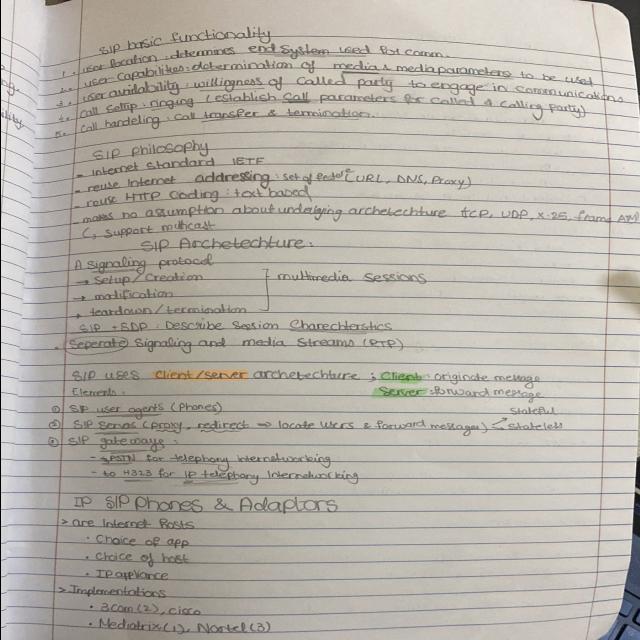 SIP basic functionality
1. user location : determines end system used for comm.
2. user capabilities : determination of media & media parameters to be used
3. user availability : willigness of called party to engage in communications
4. call setup : ringing (establish call parameters for called & calling party)
5. call handeling : call transfer & termination.
SIP Philosophy
- Internet Standard IETF
- reuse Internet addressing : set of (URL, DNS, Proxy)
- reuse HTTP Coding : text based
- makes no assumption about underlying archetechture tcp, UDP, X.25, frame, ATM
support multicast
SIP Archetechture :
A signaling protocol
→ Setup / Creation
→ modification
→ teardown / termination
multimedia Sessions
SIP + SDP : Describe Session Charechterstics
. Seperate Signaling and media Streams (RTP)
SIP uses client/server archetechture ; Client : originate message
Elements : Server : forward message
① SIP user agents (Phones)
② SIP Servers (Proxy, redirect ⇒ locate users & forward messages) Stateful Stateless
③ SIP gateways :
- PSTN for telephony internetworking
- to H323 for IP telephony Internetworking
IP SIP Phones & Adaptors
> are Internet hosts
• Choice of app
• Choice of host
• IP appliance
> Implementations
• 3com (2), cisco
• Mediatrix (1), Nortel (3)